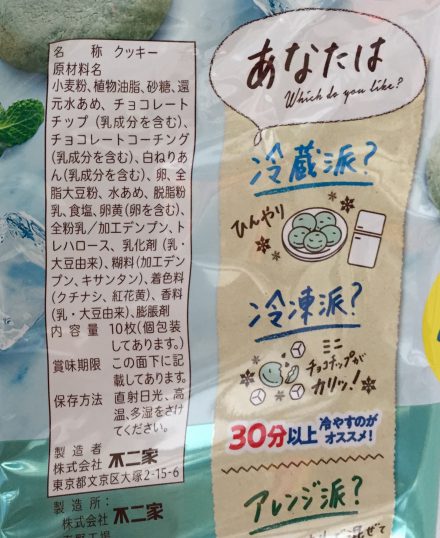 名　称　クッキー
原材料名
小麦粉、植物油脂、砂糖、還
元水あめ、チョコレート
チップ(乳成分を含む)、
チョコレートコーチング
(乳成分を含む)、白ねりあ
ん(乳成分を含む)、卵、全
脂大豆粉、水あめ、脱脂粉
乳、食塩、卵黄(卵を含む)、
全粉乳／加工デンプン、ト
レハロース、乳化剤(乳・
大豆由来)、糊料(加工デン
プン、キサンタン)、着色料
(クチナシ、紅花黄)、香料
(乳・大豆由来)、膨脹剤
内容量　10枚(個包装
してあります。)
賞味期限　この面下に記
載してあります。
保存方法　直射日光、高
温、多湿をさけ
てください。
製造者
株式会社 不二家
東京都文京区大塚2-15-6
製造所：
株式会社 不二家
あなたは
Which do you like?
冷蔵派?
ひんやり
冷凍派?
ミニ
チョコチップが
カリッ!
30分以上 冷やすのが
オススメ!
アレンジ派?